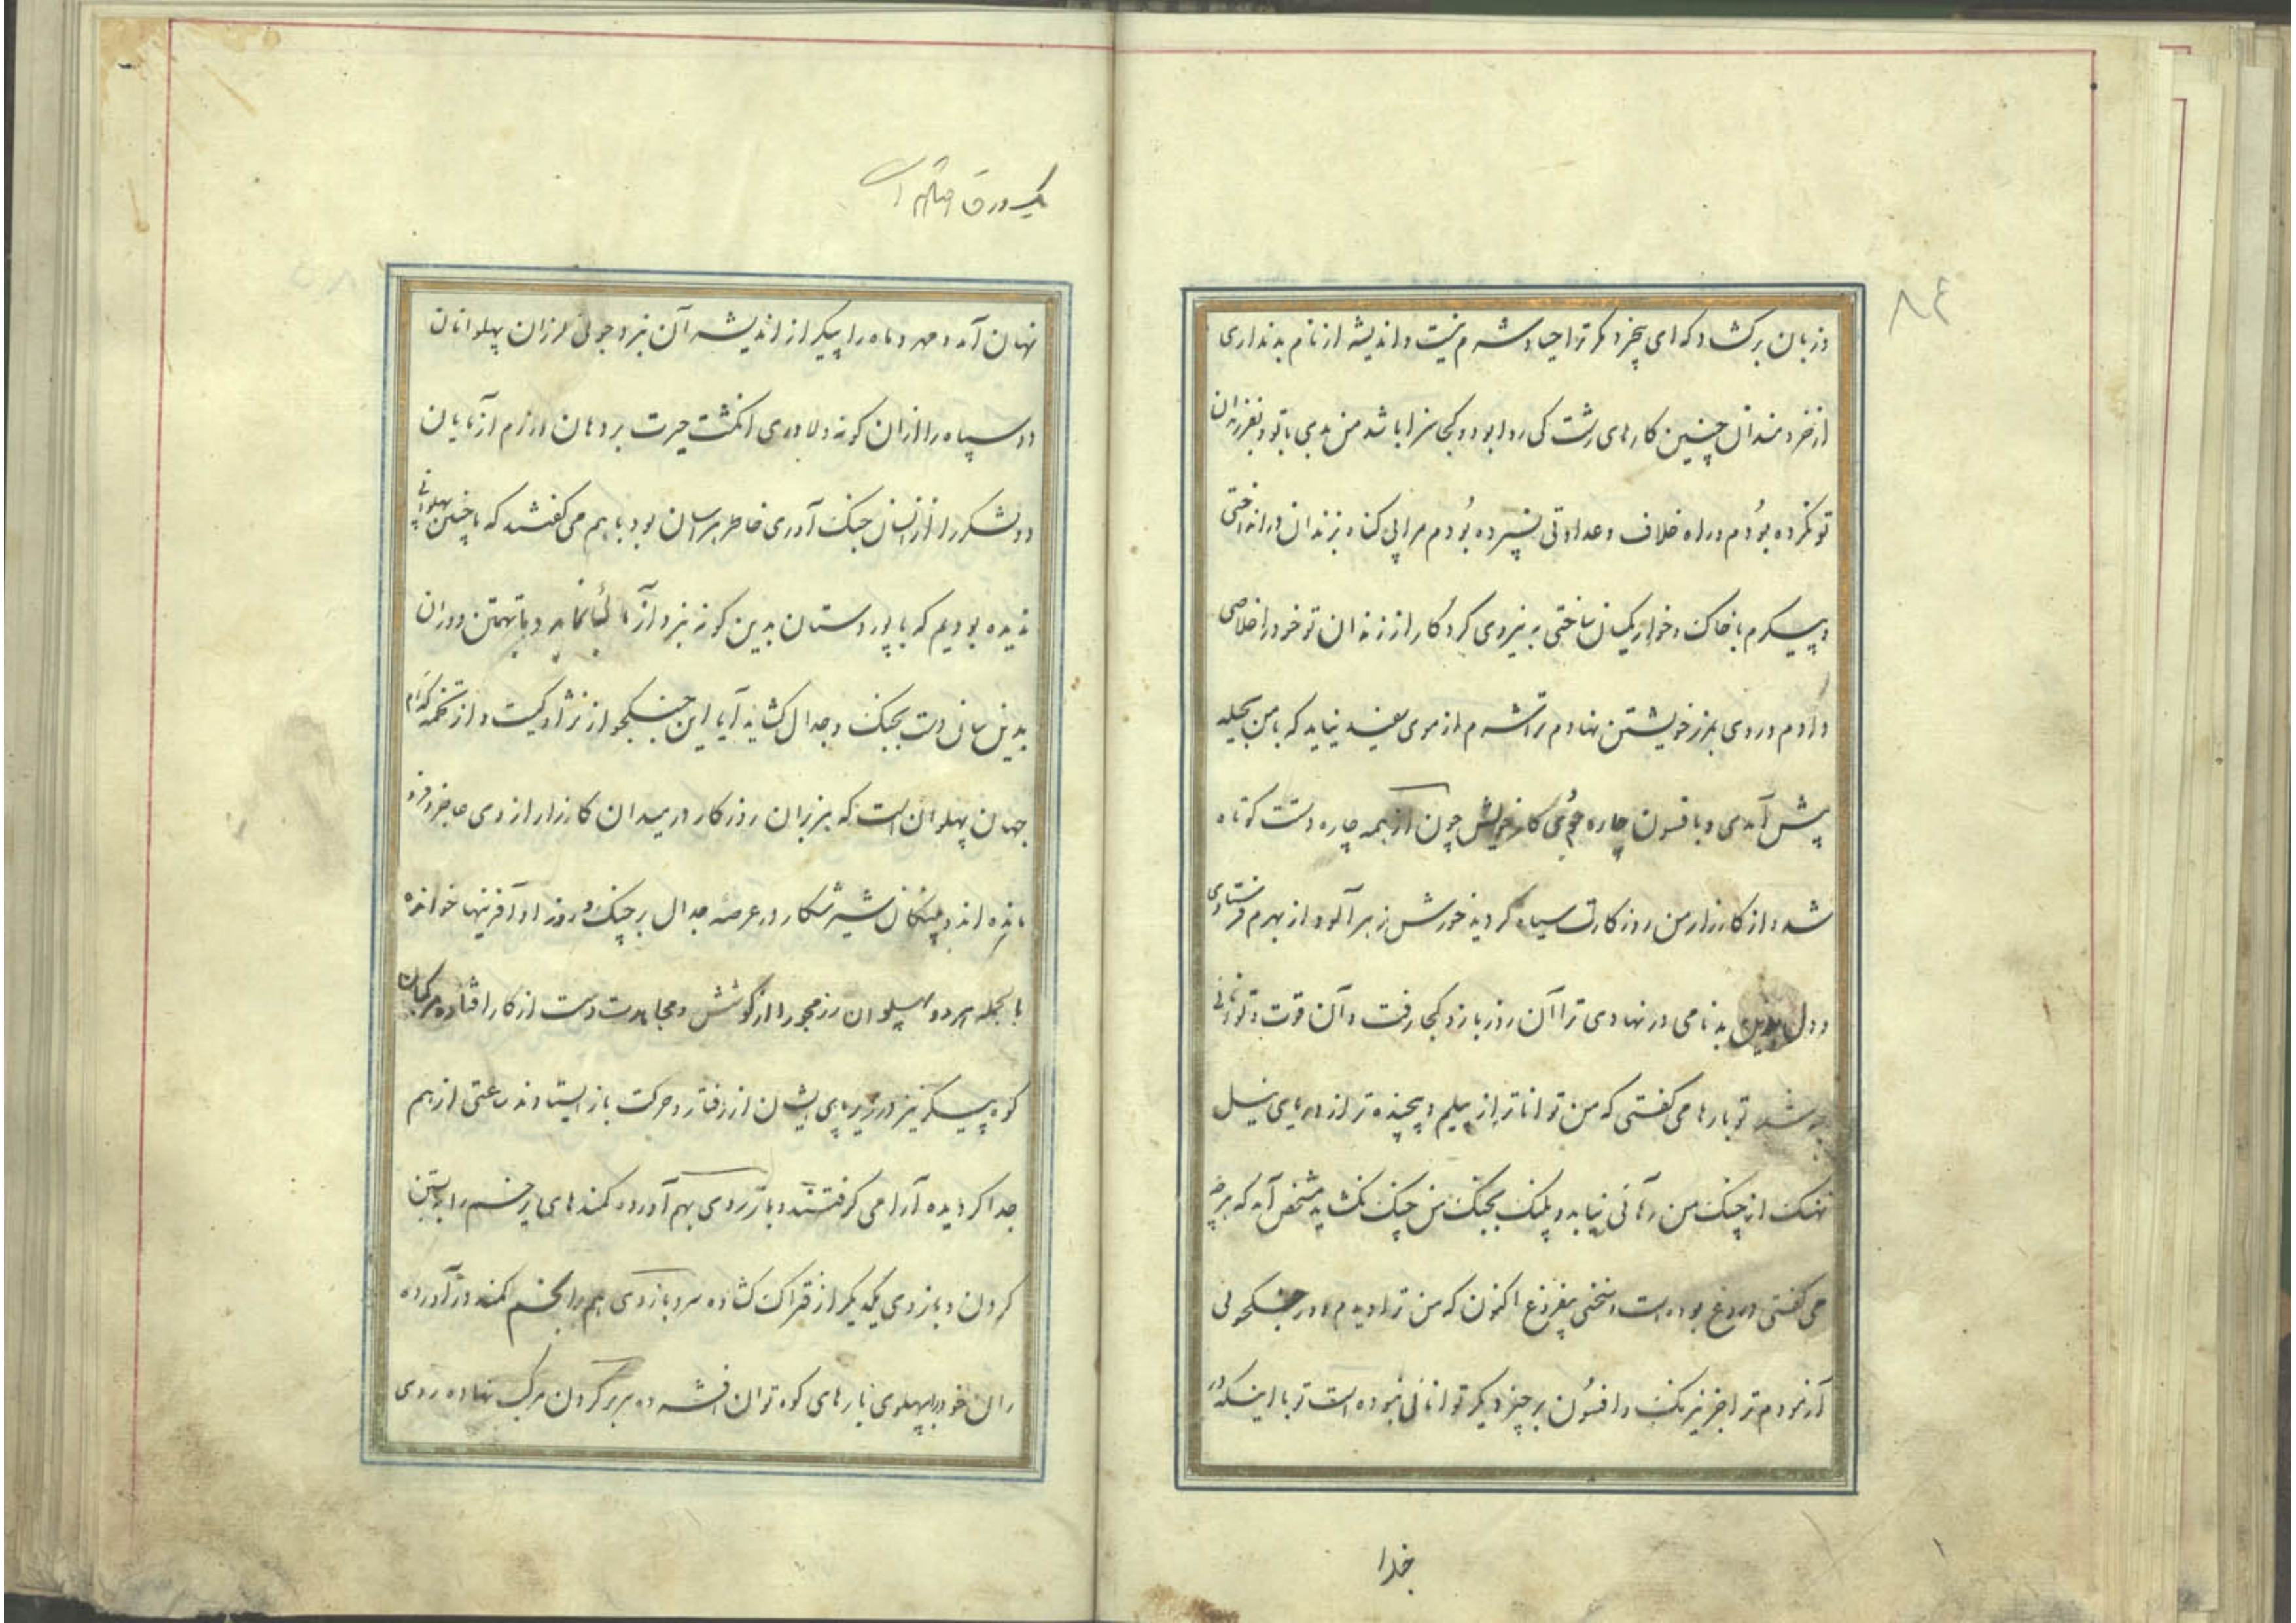 ۸۴
وزبان برکشاد که ای بیخرد مگر ترا حیا و شرم نیست و اندیشه از نام بد نداری
از خردمندان چنین کارهای زشت کی روا بود و کجا سزا باشد من بدی با تو و بفرزندان
تو نکرده بُودم و راه خلاف و عداوتی نسپرده بُودم مرا بی کناه بزندان در انداختی
و پیکرم با خاک و خوار یکسان ساختی به نیروی کردکار از زندان تو خود را خلاصی
دادم و روی بمرز خویشتن نهادم ترا شرم از موی سفید نیاید که با من بحیله
پیش آمدی و بافسون چاره جُوئی کار خویش چون از همه چاره دستت کوتاه
شد و از کارزار من روزکارت سیاه کردید خورش زهرآلود از بهرم فرستادی
و دل بدین بدنامی در نهادی ترا آن زور بازو کجا رفت و آن قوت و توانائی
چه شد تو بارها می کفتی که من تواناتر از پیلم و پیچنده تر از دریای نیل
نهنک از چنک من رهائی نیابد و پلنک بجنک من چنک نکشاید مشخص آمد که هرچه
می کفتی دروغ بوده است و سخنی بیفروغ اکنون که من ترا دیدم و در جنکجوئی
آزمودم ترا جز نیرنک و افسُون بر چیز دیکر توانائی نبوده است تو با اینکه در
خدا
یک ورق افتاده است
نهان آمد و مهر و ماه را پیکر از اندیشه آن نبردجوئی لرزان پهلوانان
دو سپاه را از ان کونه دلاوری انکشت حیرت بر دهان و رزم آزمایان
دو لشکر را از انسان جنک آوری خاطر هراسان بود با هم می کفتند که ما چنین پهلوانی
ندیده بودیم که با پور دستان بدین کونه نبرد آزمائی نماید و با تهمتن دوران
بدین سان دست بجنک و جدال کشاید آیا این جنکجو از نژاد کیست و از تخمه کدام
جهان پهلوان است که هزبران روزکار در میدان کارزار از وی عاجز و فرو
مانده اند و پلنکان شیر شکار در عرصه جدال بر چنک و زور او آفرینها خوانده
بالجمله هر دو پهلوان رزمجو را از کوشش و مجاهدت دست از کار افتاده مرکبان
کوه پیکر نیز در زیر پای ایشان از رفتار و حرکت باز ایستادند ساعتی از هم
جدا کردیده آرامی کرفتند و باز روی بهم آورده کمندهای پر خم را به بستن
کردن و بازوی یکدیکر از فتراک کشاده سر و بازوی هم را بخم کمند در آورده
ران خود را بپهلوی بارهای کوه توان افشرده سر بر کردن مرکب نهاده روی